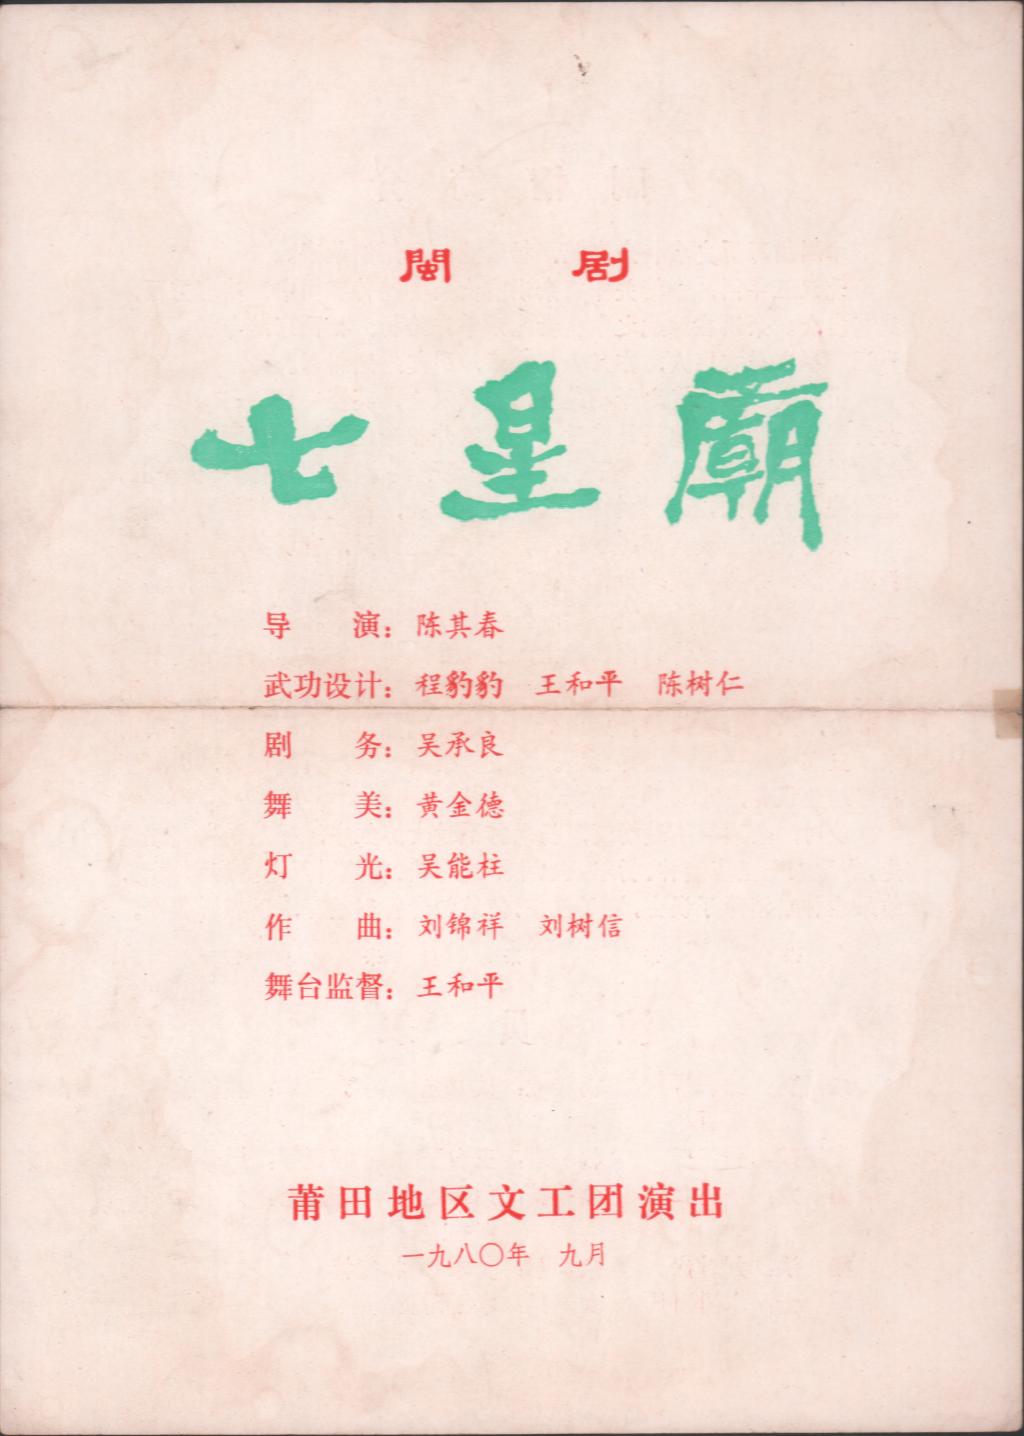 閩 剧
七星廟
导 演：陈其春
武功设计：程豹豹 王和平 陈树仁
剧 务：吴承良
舞 美：黄金德
灯 光：吴能柱
作 曲：刘锦祥 刘树信
舞台监督：王和平
莆田地区文工团演出
一九八〇年 九月